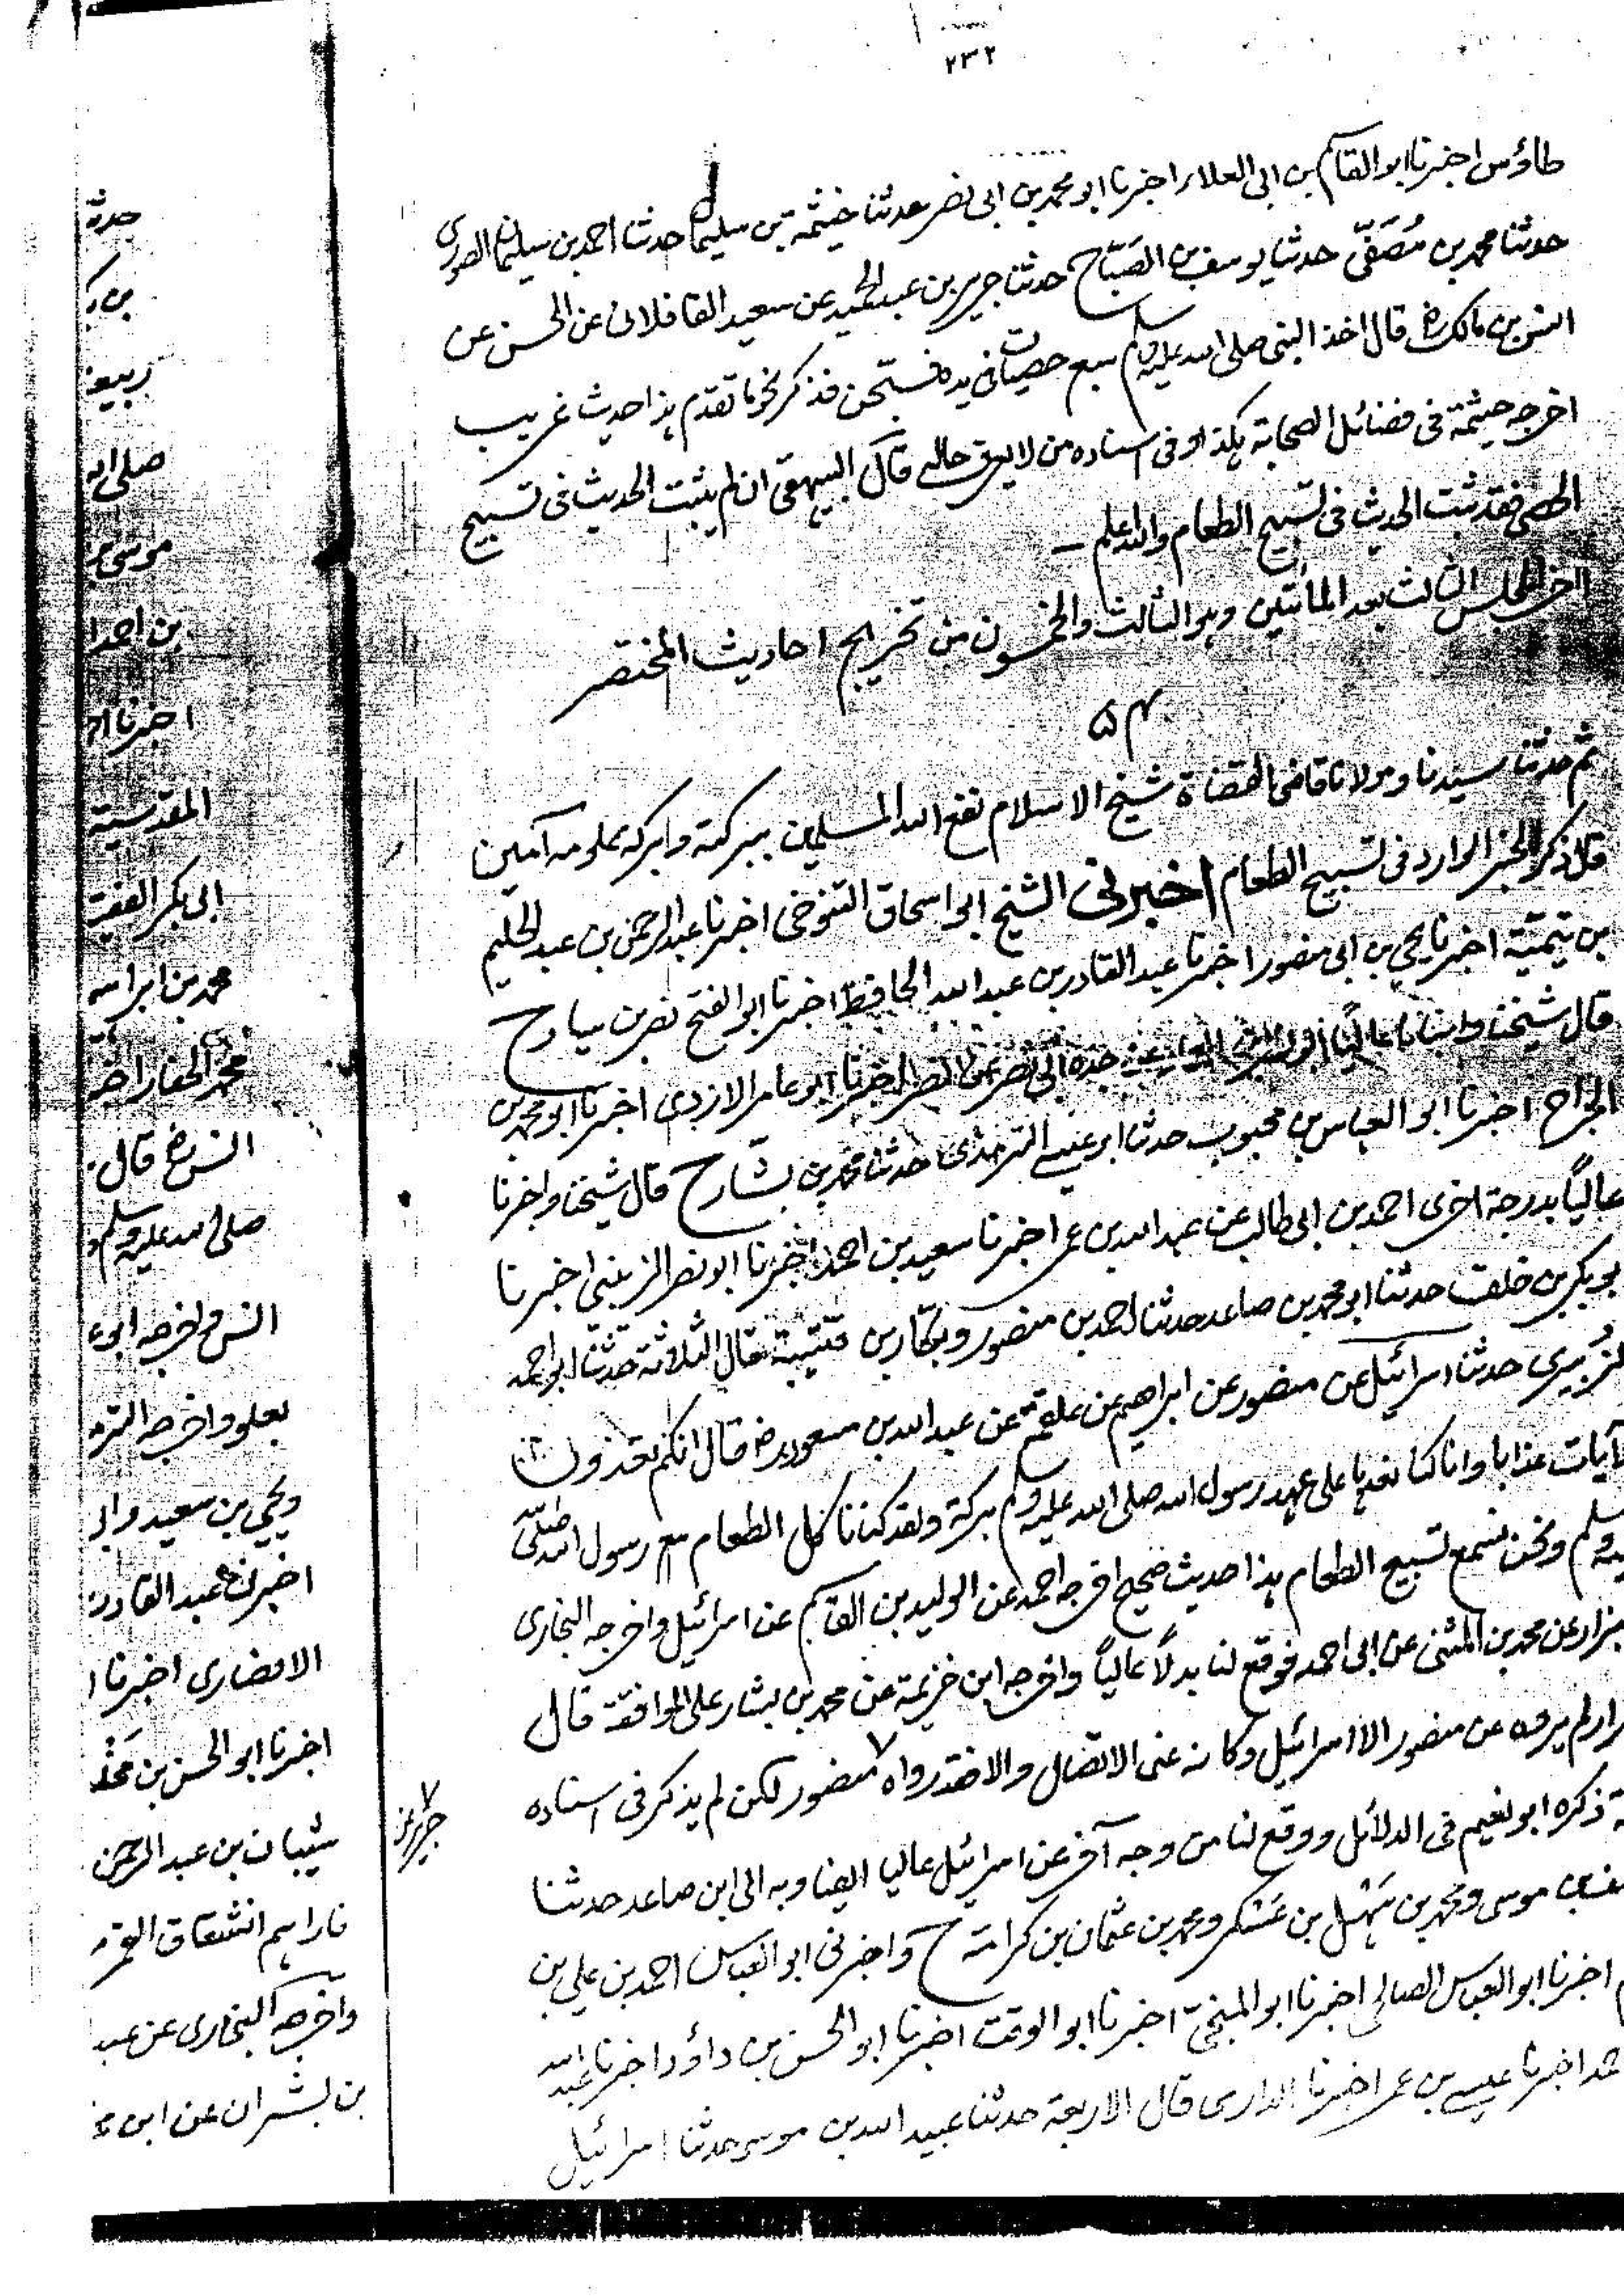 ٢٣٢
طاؤس اخبرنا ابو القاسم بن ابى العلاء اخبرنا ابو محمد بن ابى نصر حدثنا خيثمة بن سليمان حدثنا احمد بن سليمان الصورى
حدثنا محمد بن مُصَفّى حدثنا يوسف بن الصَبّاح حدثنا جرير بن عبد الحميد عن سعيد القافلانى عن الحسن عن
انس بن مالك رض قال اخذ النبى صلى الله عليه وسلم سبع حصيات فى يده فسبّحن فذكر نحو ما تقدم هذا حديث غريب
اخرجه خيثمة فى فضائل الصحابة هكذا وفى اسناده من لا يعرف حاله قال البيهقى ان لم يثبت الحديث فى تسبيح
الحصى فقد ثبت الحديث فى تسبيح الطعام والله اعلم ــ
آخر المجلس الثالث بعد المأتين وهو الثالث والخمسون من تخريج احاديث المختصر
٥٤
ثم حدثنا سيدنا ومولانا قاضى القضاة شيخ الاسلام نفع الله المسلمين ببركته وبركة علومه آمين
قال ذكر الخبر الوارد فى تسبيح الطعام اخبرنى الشيخ ابو اسحاق التنوخى اخبرنا عبد الرحمن بن عبد الحليم
بن تيميّة اخبرنا يحيى بن ابى منصور اخبرنا عبد القادر بن عبد الله الحافظ اخبرنا ابو الفتح نصر بن سيار ح
قال شيخنا وانبانا عاليًا ابو نصر بن العماد عن جده ابى نصر عن نصر اخبرنا ابو عامر الازدى اخبرنا ابو محمد بن
الجراح اخبرنا ابو العباس بن محبوب حدثنا ابو عيسى الترمذى حدثنا محمد بن بشار ح قال شيخنا واخبرنا
عالياً بدرجة اخرى احمد بن ابى طالب عن عبد الله بن عمر اخبرنا سعيد بن احمد اخبرنا ابو نصر الزينبى اخبرنا
ابو بكر بن خلف حدثنا ابو محمد بن صاعد حدثنا احمد بن منصور وبكّار بن قتيبة قال الثلاثة حدثنا ابو احمد
الزُبيرى حدثنا اسرائيل عن منصور عن ابراهيم عن علقمة عن عبد الله بن مسعود رض قال انكم تعدّون
الآيات عذابا وانا كنا نعدها على عهد رسول الله صلى الله عليه وسلم بركة ولقد كنا نأكل الطعام مع رسول الله صلى الله
عليه وسلم ونحن نسمع تسبيح الطعام هذا حديث صحيح اخرجه احمد عن الوليد بن القاسم عن اسرائيل واخرجه البخارى
والبزار عن محمد بن المثنى عن ابى احمد فوقع لنا بدلاً عالياً واخرجه ابن خزيمة عن محمد بن بشار على الموافقة قال
البزار لم يروه عن منصور الا اسرائيل وكانه عنى الاتصال والا فقد رواه ٧ منصور لكن لم يذكر فى اسناده
ذكره ابو نعيم فى الدلائل ووقع لنا من وجه آخر عن اسرائيل عاليا ايضا وبه الى ابن صاعد حدثنا
موسى ومحمد بن سَهْل بن عَسْكر ومحمد بن عثمان بن كرامة ح واخبرنى ابو العباس احمد بن على بن
اخبرنا ابو العباس الصالحى اخبرنا ابو المنجىّ اخبرنا ابو الوقت اخبرنا ابو الحسن بن داؤد اخبرنا عبد الله
احمد اخبرنا عيسى بن عمر اخبرنا الدارمى قال الاربعة حدثنا عبيد الله بن موسى حدثنا اسرائيل
٧
جرير عن
حدثنا
ربيعة
صلى الله
موسى بن
بن احمد ا
اخبرنا ا
المقدسية
ابى بكر الفقيه
محمد بن ابراهيم
محمد الحفار اخبر
انس رض قال
صلى الله عليه وسلم و
انس واخرجه ابو ع
بعلو واخرجه التر
ويحيى بن سعيد وا
اخبرنا عبد القادر
الانصارى اخبرنا ا
اخبرنا ابو الحسن بن مَخْلد
شيبان بن عبد الرحمن
فاراهم انشقاق القمر
واخرجه البخارى عن عبد
بن بشران عن ابن